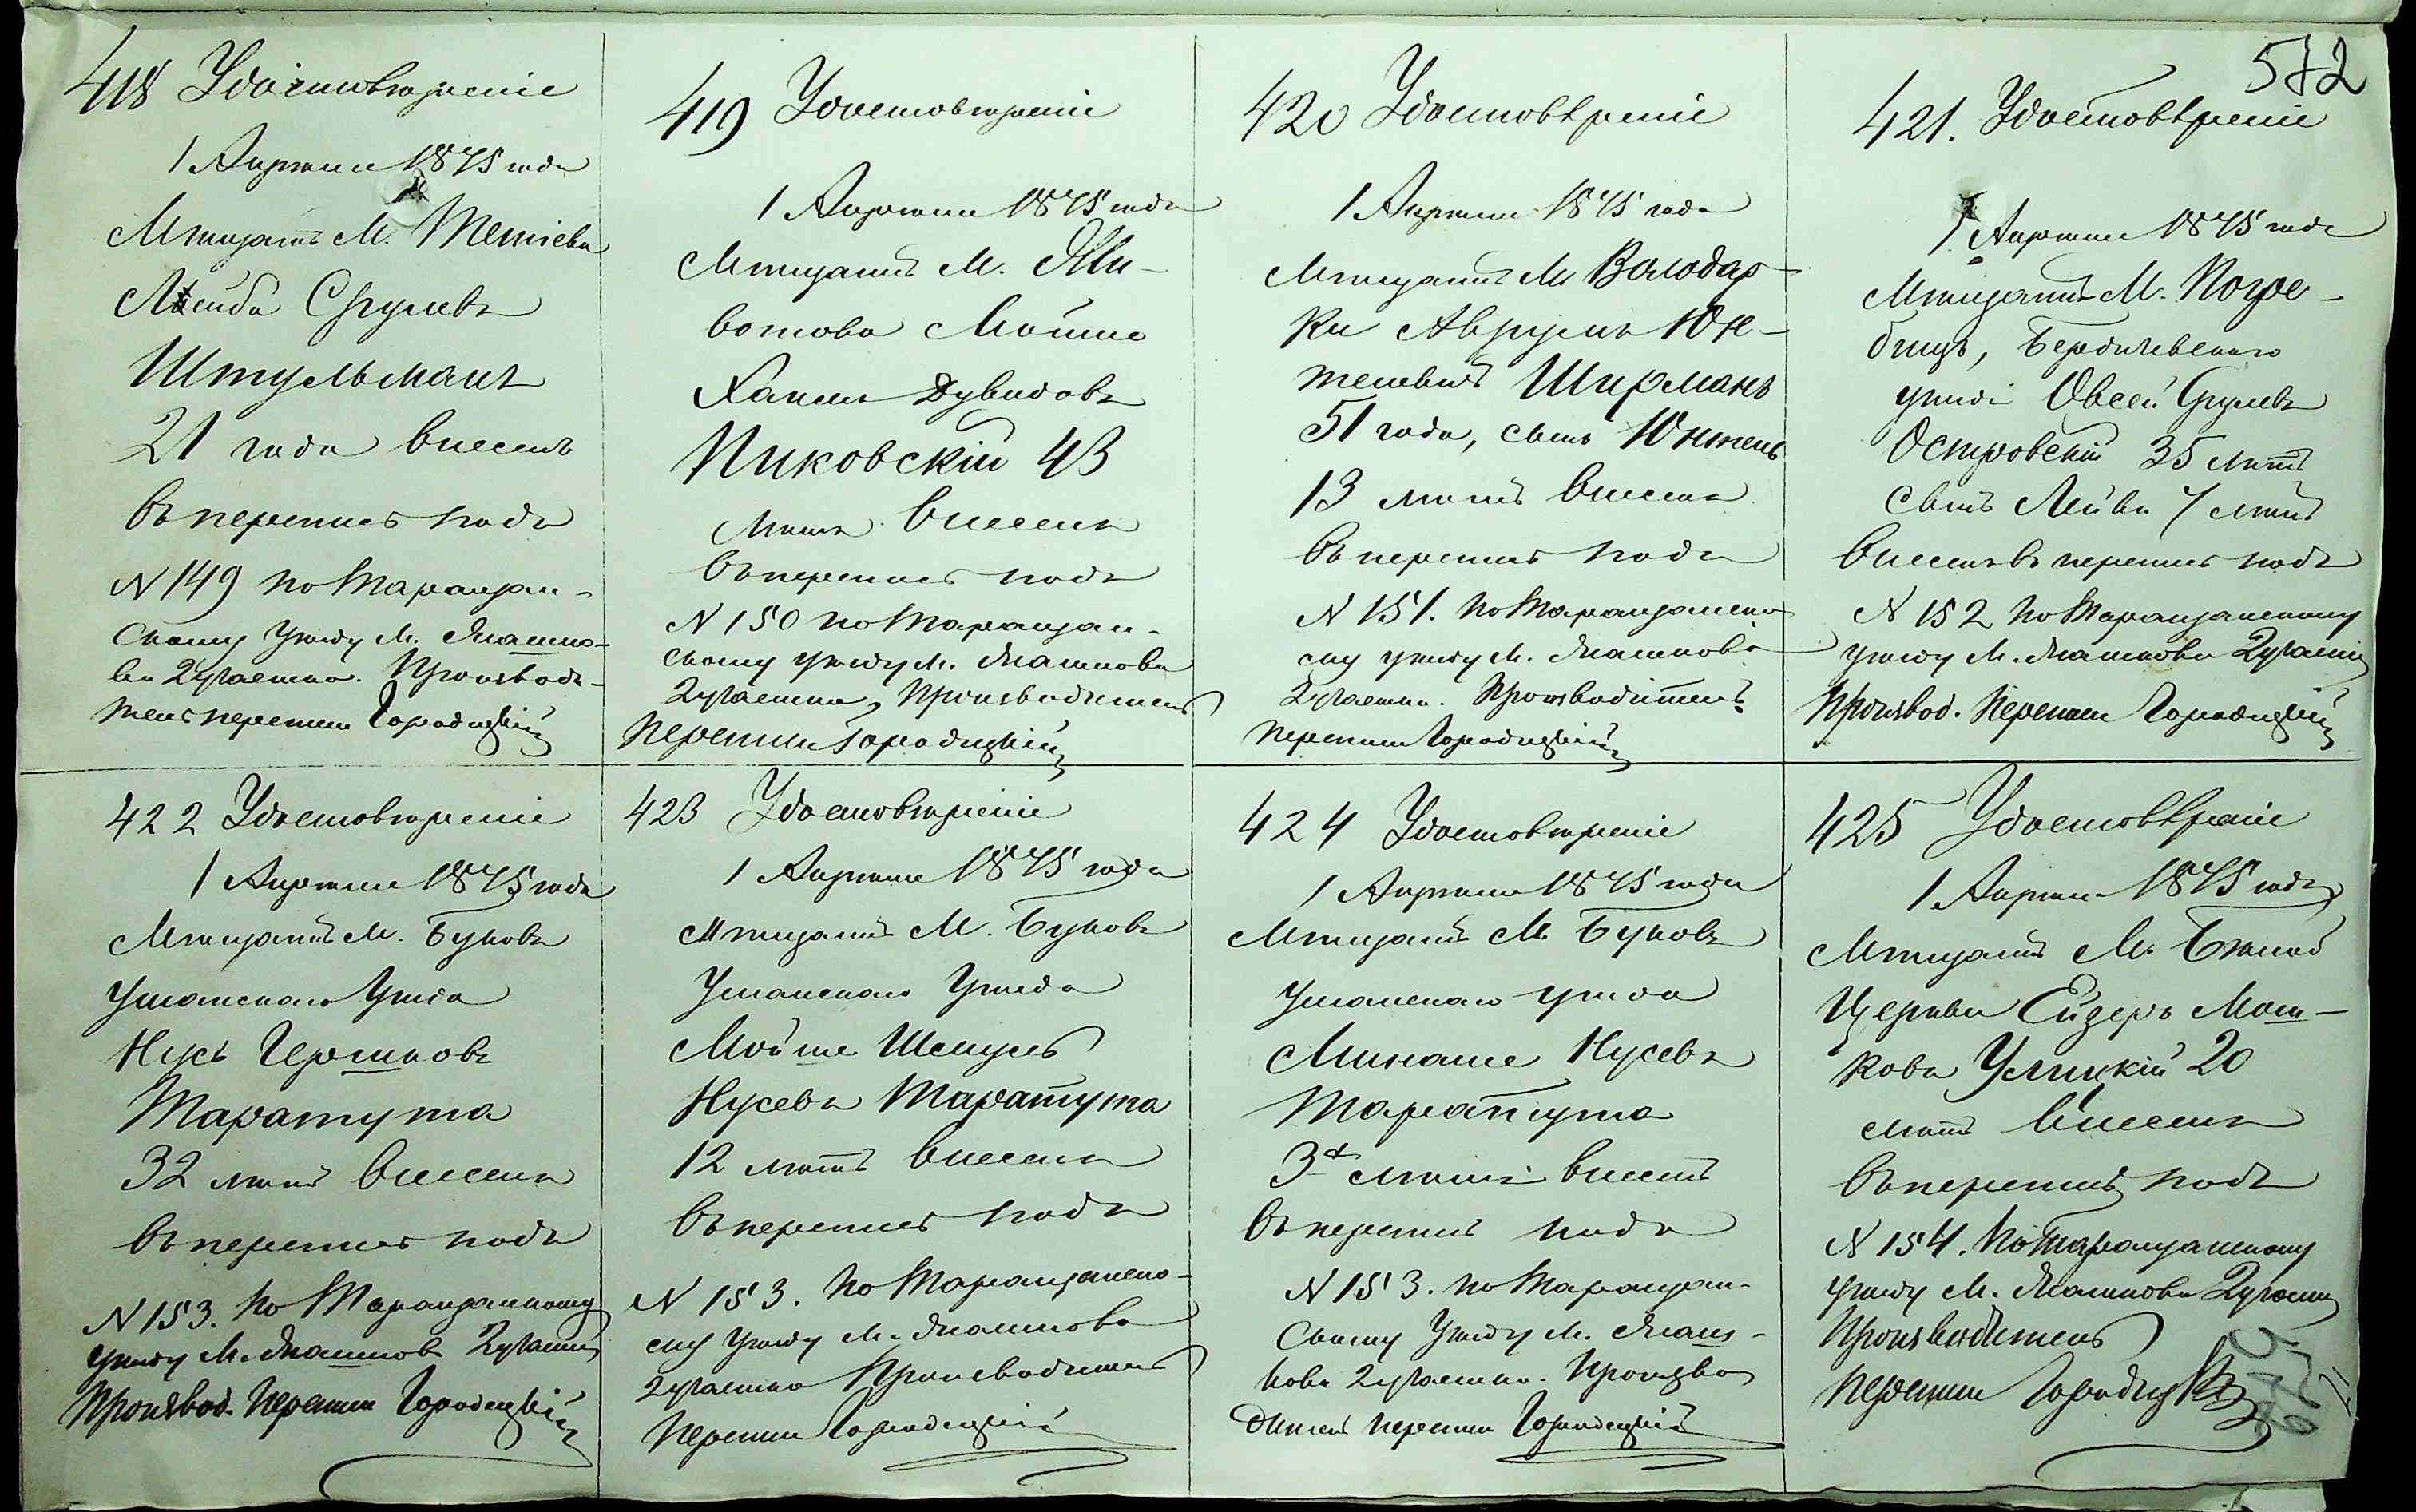 572
418 Удостовѣреніе
1 Апрѣля 1875 года
Мѣщанинъ М. Тетіева
Лейба Срулевъ
Штульманъ
21 года внесенъ
въ перепись подъ
N 149 по Таращан-
скому уѣзду М.
2 участка. Производи-
тель переписи Городецкій
419 Удостовѣреніе
1 Апрѣля 1875 года
Мѣщанинъ М. Жи-
вотова Мойше
Хаимъ Дувидовъ
Пиковскій 43
лѣтъ внесенъ
въ перепись подъ
N 150 по Таращан-
скому уѣзду М.
2 участка, Производитель
переписи Городецкій
420 Удостовѣреніе
1 Апрѣля 1875 года
Мѣщанинъ М. Володар-
ки Аврумъ Юн-
телевъ Ширманъ
51 года, сынъ Юнтель
13 лѣтъ внесенъ
въ перепись подъ
N 151. по Таращанско-
му уѣзду М.
2 участка. Производитель
переписи Городецкій
421. Удостовѣреніе
1 Апрѣля 1875 года
Мѣщанинъ М. Погре-
бищъ, Бердичевскаго
уѣзда Овсей Срулевъ
Островскій 35 лѣтъ
сынъ Лейба 7 лѣтъ
внесенъ въ перепись подъ
N 152 по Таращанскому
уѣзду М. 2 участка
Производ. переписи Городецкій
422 Удостовѣреніе
1 Апрѣля 1875 года
Мѣщанинъ М. Буковъ
Уманскаго уѣзда
Нусь Гершковъ
Таратута
32 лѣтъ внесенъ
въ перепись подъ
N 153. по Таращанскому
уѣзду М. 2 участка
Производ. переписи Городецкій
423 Удостовѣреніе
1 Апрѣля 1875 года
Мѣщанинъ М. Буковъ
Уманскаго уѣзда
Мойше Шмуль
Нусевъ Таратута
12 лѣтъ внесенъ
въ перепись подъ
N 153. по Таращанско-
му уѣзду М.
2 участка Производитель
переписи Городецкій
424 Удостовѣреніе
1 Апрѣля 1875 года
Мѣщанинъ М. Буковъ
Уманскаго уѣзда
Минаше Нусевъ
Таратута
3х лѣтъ внесенъ
въ перепись подъ
N 153. по Таращан-
скому уѣзду М.
2 участка. Произво
дитель переписи Городецкій
425 Удостовѣреніе
1 Апрѣля 1875 года
Мѣщанинъ М. Бѣлой
Церкви Ейзеръ Мош-
ковъ Улицкій 20
лѣтъ внесенъ
въ перепись подъ
N 154. по Таращанскому
уѣзду М. 2 участка
Производитель
переписи Городецкій